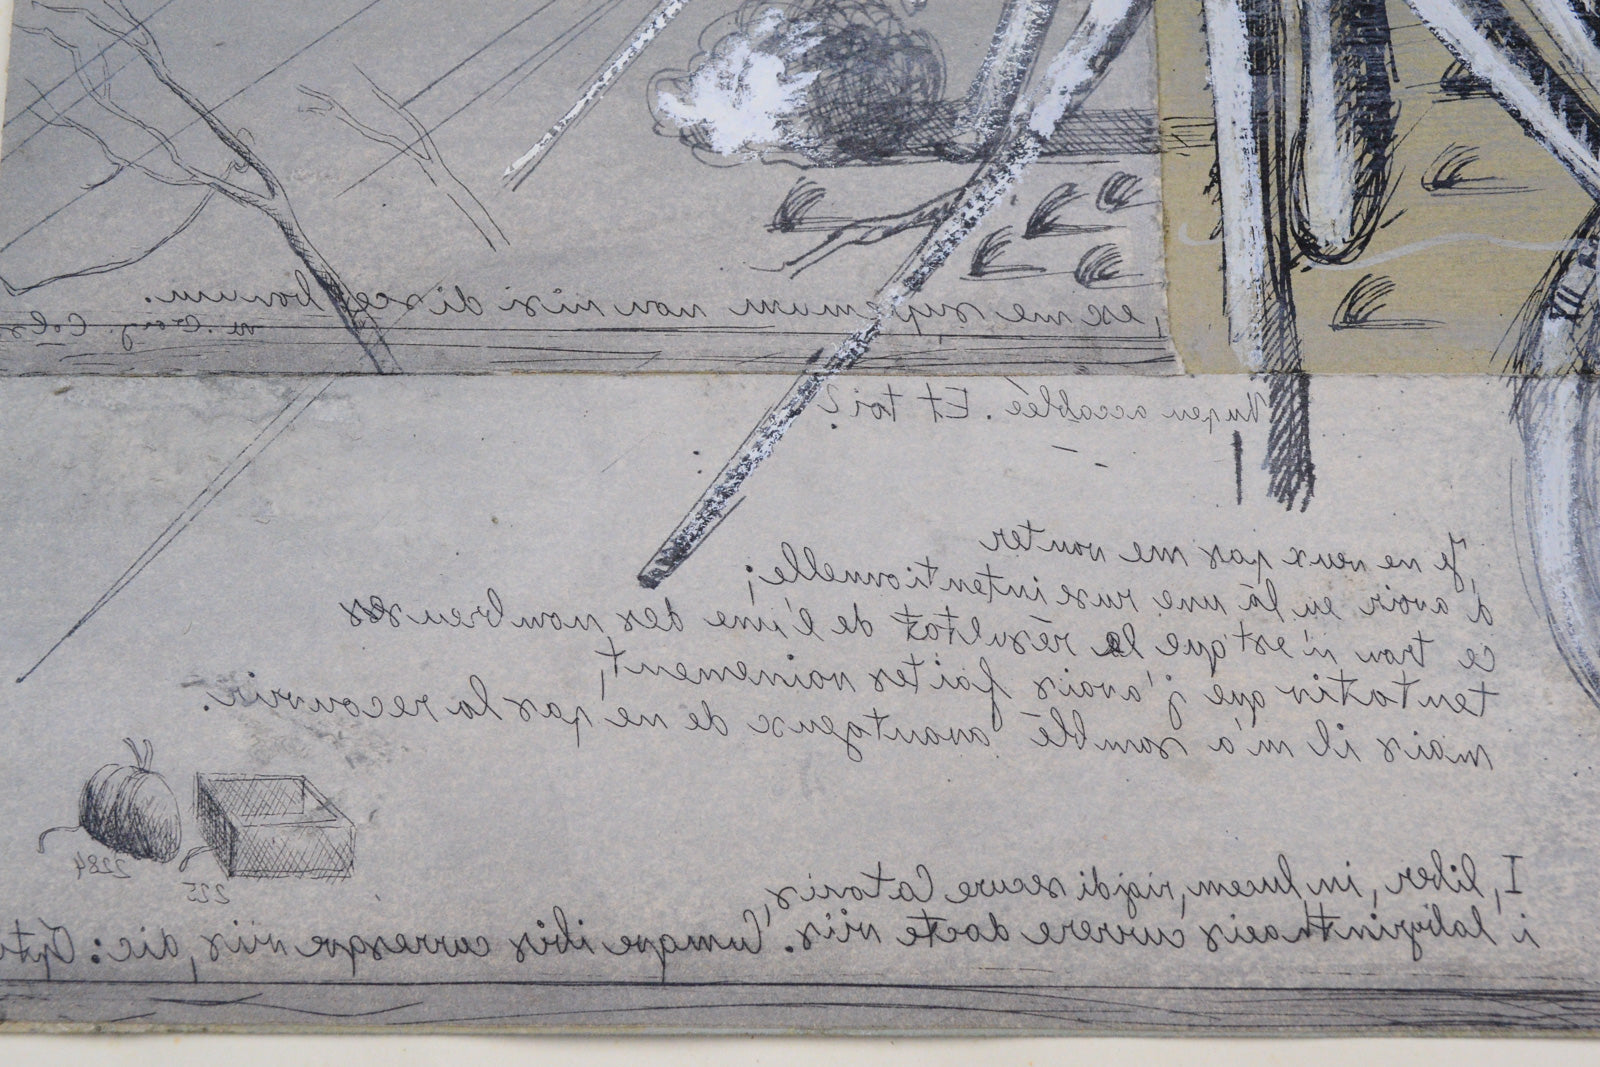 , ex me supremum non nisi disces bonum.
Un peu accablée. Et toi?
Je ne veux pas me vanter
d'avoir eu là une ruse intentionnelle;
ce trou n'est que le résultat de l'une des nombreuses
tentativ que j'avais faites vainement,
mais il m'a semblé avantgeux de ne pas la recouvrir.
2284
225
I, liber, in lucem, rigidi secure Catonis,
i labyrinthaeis currere docte viis. Cumque ibis curresqve viis, dic: